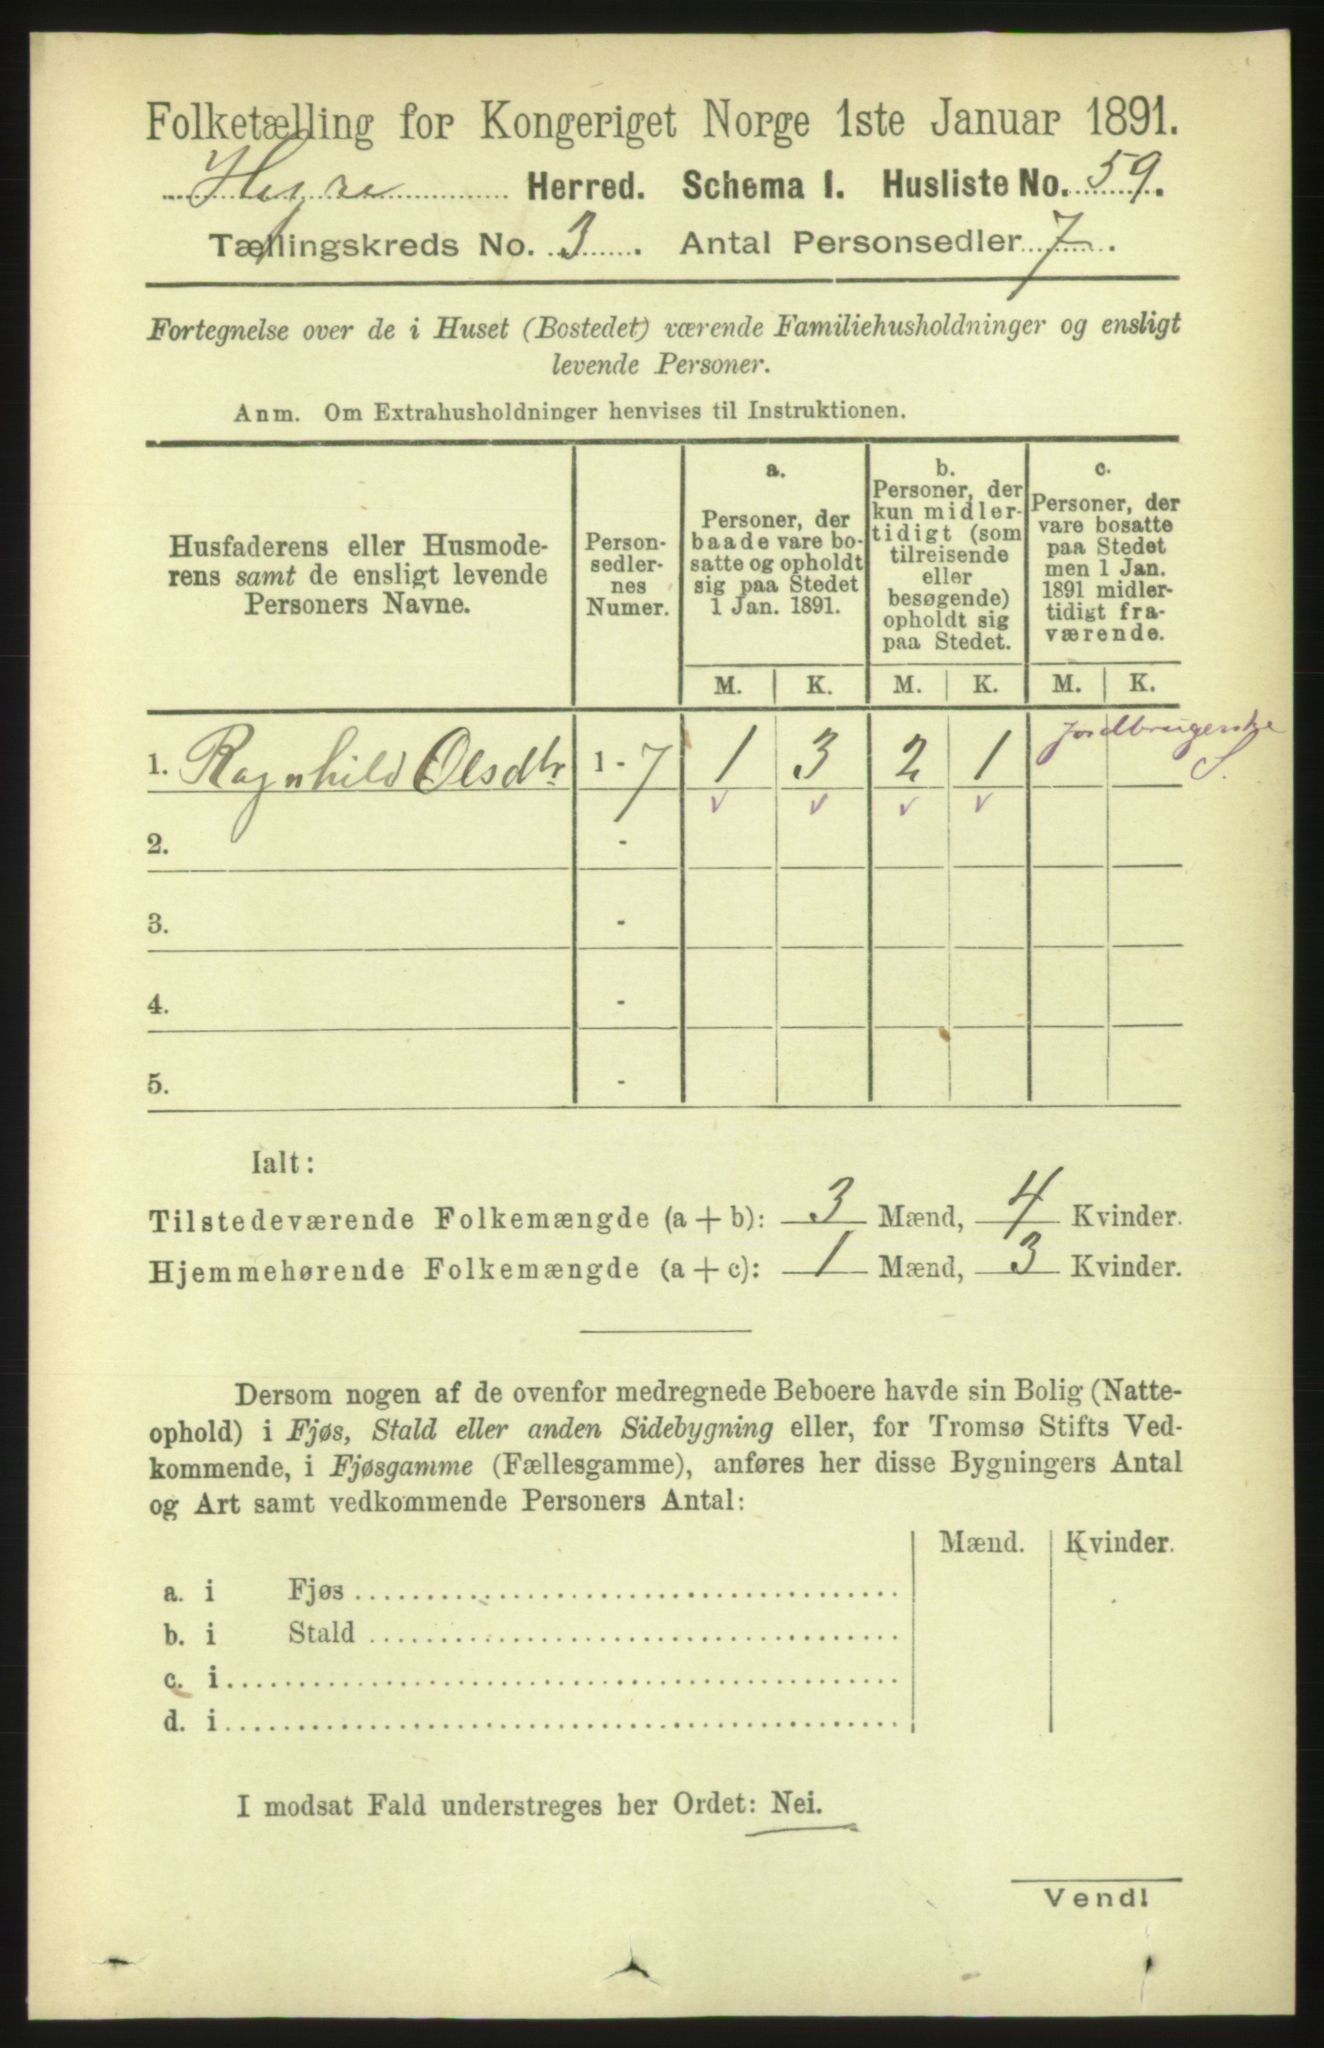 Folketælling for Kongeriget Norge 1ste Januar 1891.
Hegra Herred. Schema I. Husliste No. 59.
Tællingskreds No. 3. Antal Personsedler 7.
Fortegnelse over de i Huset (Bostedet) værende Familiehusholdninger og ensligt
levende Personer.
Anm. Om Extrahusholdninger henvises til Instruktionen.
Husfaderens eller Husmode-
rens samt de ensligt levende
Personers Navne.
Person-
sedler-
nes
Numer.
a.
Personer, der
baade vare bo-
satte og opholdt
sig paa Stedet
1 Jan. 1891.
b.
Personer, der
kun midler-
tidigt (som
tilreisende
eller
besøgende)
opholdt sig
paa Stedet.
c.
Personer, der
vare bosatte
paa Stedet
men 1 Jan.
1891 midler-
tidigt fra-
værende.
M. K. M. K. M. K.
1. Ragnhild Olsdtr 1-7 1 3 2 1 Jordbrugerske
S.
2. -
3. -
4. -
5. -
Ialt:
Tilstedeværende Folkemængde (a + b): 3 Mænd, 4 Kvinder.
Hjemmehørende Folkemængde (a + c): 1 Mænd, 3 Kvinder.
Dersom nogen af de ovenfor medregnede Beboere havde sin Bolig (Natte-
ophold) i Fjøs, Stald eller anden Sidebygning eller, for Tromsø Stifts Ved-
kommende, i Fjøsgamme (Fællesgamme), anføres her disse Bygningers Antal
og Art samt vedkommende Personers Antal:
Mænd. Kvinder.
a. i Fjøs
b. i Stald
c. i
d. i
I modsat Fald understreges her Ordet: Nei.
Vend!